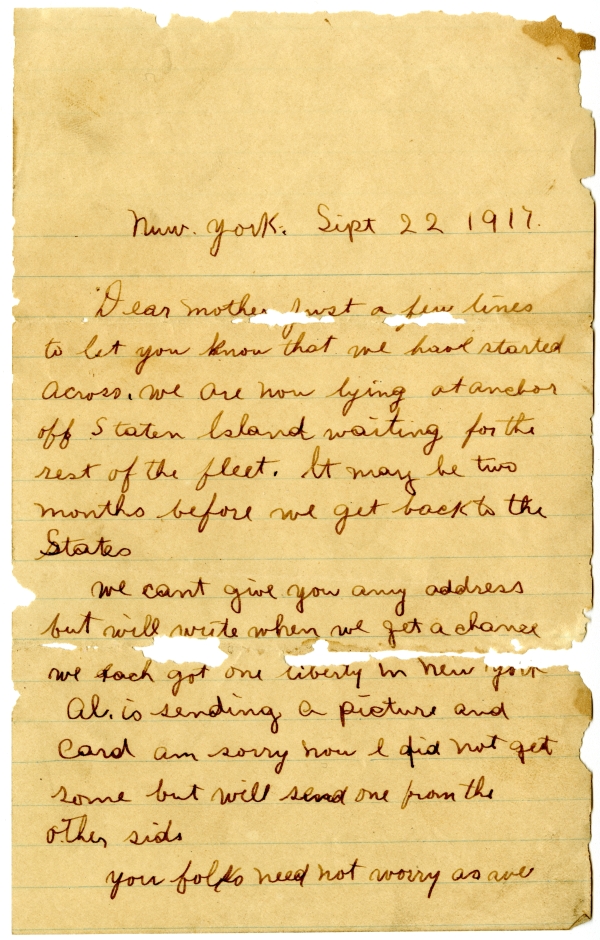 New. York. Sept 22 1917.
Dear Mother Just a few lines
to let you know that we have started
across. we are now lying at anchor
off Staten Island waiting for the
rest of the fleet. It may be two
months before we get back to the
States
we cant give you any address
but will write when we get a chance
we each got one liberty in New York
Al. is sending a picture and
Card am sorry now I did not get
some but will send one from the
other side
you folks need not worry as we